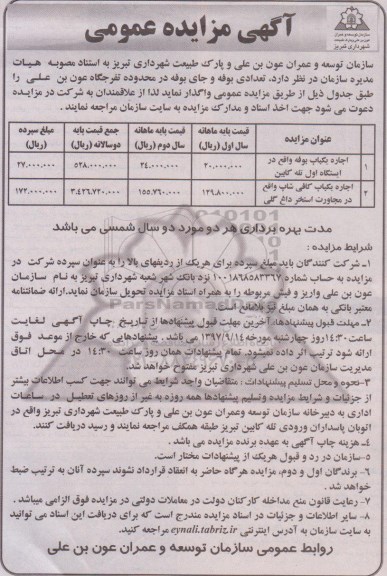 آگهی مزایده عمومی
سازمان توسعه و عمران عون بن علی و پارک طبیعت شهرداری تبریز
سازمان توسعه و عمران عون بن علی و پارک طبیعت شهرداری تبریز به استناد مصوبه هیات
مدیره سازمان در نظر دارد، تعدادی بوفه و جای بوفه در محدوده تفرجگاه عون بن علی را
طبق جدول ذیل از طریق مزایده عمومی واگذار نماید لذا از علاقمندان به شرکت در مزایده
دعوت می شود جهت اخذ اسناد و مدارک مزایده به سایت سازمان مراجعه نمایند.
عنوان مزایده | قیمت پایه ماهانه سال اول (ریال) | قیمت پایه ماهانه سال دوم (ریال) | جمع قیمت پایه دوسالانه (ریال) | مبلغ سپرده (ریال)
۱ | اجاره یکباب بوفه واقع در ایستگاه اول تله کابین | ۲۰.۰۰۰.۰۰۰ | ۲۴.۰۰۰.۰۰۰ | ۵۲۸.۰۰۰.۰۰۰ | ۲۷.۰۰۰.۰۰۰
۲ | اجاره یکباب کافی شاپ واقع در مجاورت استخر داغ گلی | ۱۲۹.۸۰۰.۰۰۰ | ۱۵۵.۷۶۰.۰۰۰ | ۳.۴۲۶.۷۲۰.۰۰۰ | ۱۷۲.۰۰۰.۰۰۰
مدت بهره برداری هر دو مورد دو سال شمسی می باشد
شرایط مزایده :
۱- شرکت کنندگان باید مبلغ سپرده برای هریک از ردیفهای بالا را به عنوان سپرده شرکت در
مزایده به حساب شماره ۱۰۰۱۸۶۸۵۸۳۳۶۷ نزد بانک شهر شعبه شهرداری تبریز به نام سازمان
عون بن علی واریز و فیش مربوطه را به همراه اسناد مزایده تحویل سازمان نماید. ارائه ضمانتنامه
معتبر بانکی به همان مبلغ نیز بلامانع است.
۲- مهلت قبول پیشنهادها: آخرین مهلت قبول پیشنهادها از تاریخ چاپ آگهی لغایت
ساعت ۱۴:۳۰ روز چهارشنبه مورخه ۱۳۹۷/۹/۱۴ می باشد. پیشنهادهایی که خارج از موعد فوق
ارائه شود ترتیب اثر داده نمیشود. تمام پیشنهادات همان روز ساعت ۱۴:۳۰ در محل اتاق
مدیریت سازمان عون بن علی شهرداری تبریز مفتوح خواهد شد.
۳- نحوه و محل تسلیم پیشنهادات: متقاضیان واجد شرایط می توانند جهت کسب اطلاعات بیشتر
از جزئیات و شرایط مزایده و تسلیم پیشنهادها همه روزه به غیر از روزهای تعطیل در ساعات
اداری به دبیرخانه سازمان توسعه وعمران عون بن علی و پارک طبیعت شهرداری تبریز واقع در
اتوبان پاسداران ورودی تله کابین تبریز طبقه همکف مراجعه نمایند و رسید دریافت کنند.
۴- هزینه چاپ آگهی به عهده برنده مزایده می باشد.
۵- سازمان در رد و قبول هریک از پیشنهادات مختار است.
۶- برندگان اول و دوم، مزایده هرگاه حاضر به انعقاد قرارداد نشوند سپرده آنان به ترتیب ضبط
خواهد شد.
۷- رعایت قانون منع مداخله کارکنان دولت در معاملات دولتی در مزایده فوق الزامی میباشد.
۸- سایر اطلاعات و جزئیات در اسناد مزایده مندرج است که برای دریافت این اسناد می توانید
به سایت سازمان به آدرس اینترنتی eynali.tabriz.ir مراجعه کنید.
روابط عمومی سازمان توسعه و عمران عون بن علی